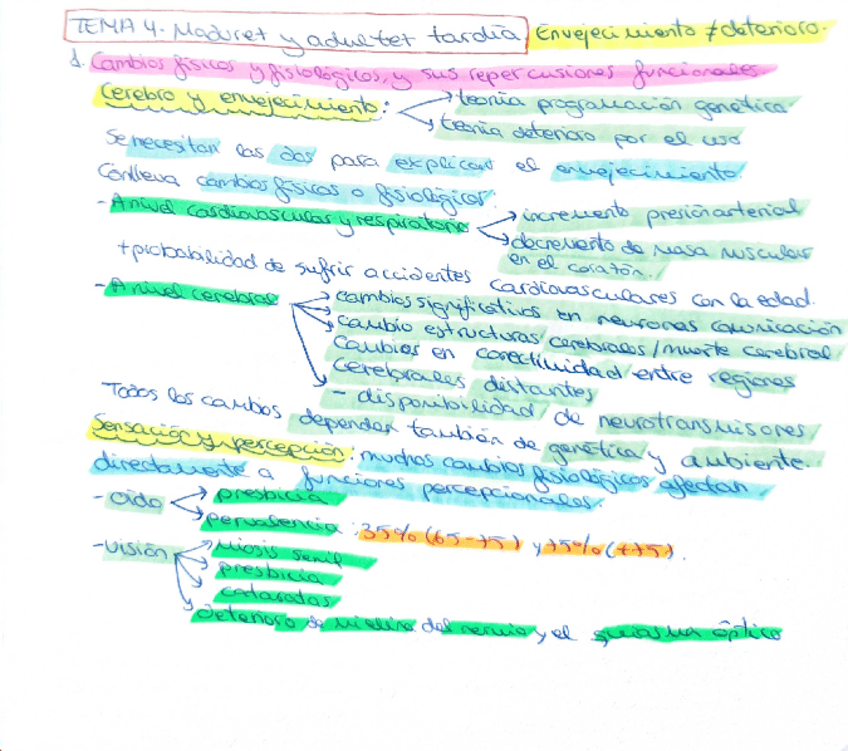 TEMA 4. Madurez y adultez tardía Envejecimiento ≠ deterioro.
1. Cambios físicos y fisiológicos, y sus repercusiones funcionales
Cerebro y envejecimiento: → teoría programación genética
→ teoría deterioro por el uso
Se necesitan las dos para explicar el envejecimiento.
Conlleva cambios físicos o fisiológicos:
- A nivel cardiovascular y respiratorio → incremento presión arterial
→ decremento de masa muscular
en el corazón.
+ probabilidad de sufrir accidentes cardiovasculares con la edad.
- A nivel cerebral → cambios significativos en neuronas comunicación
→ cambio estructuras cerebrales / muerte cerebral
Cambios en conectividad entre regiones
cerebrales distantes
→ - disponibilidad de neurotransmisores
Todos los cambios dependen también de genética y ambiente.
Sensación y percepción: muchos cambios fisiológicos afectan
directamente a funciones percepcionales.
- Oído → presbicia
→ pervalencia: 35% (65-75) y 75% (+75).
- Visión → miosis senil
→ presbicia
→ cataratas
→ deterioro de mielina del nervio y el quiasma óptico